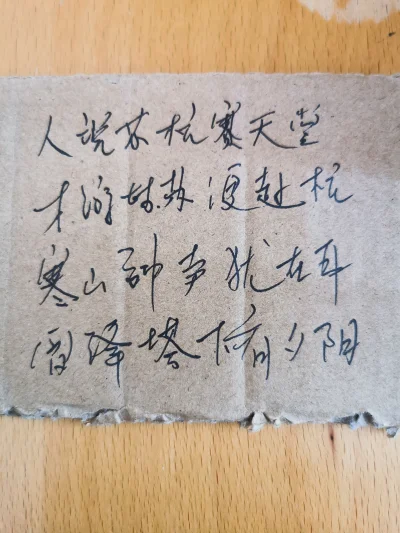 人说苏杭赛天堂
才游姑苏便赴杭
寒山钟声犹在耳
雷峰塔下看夕阳